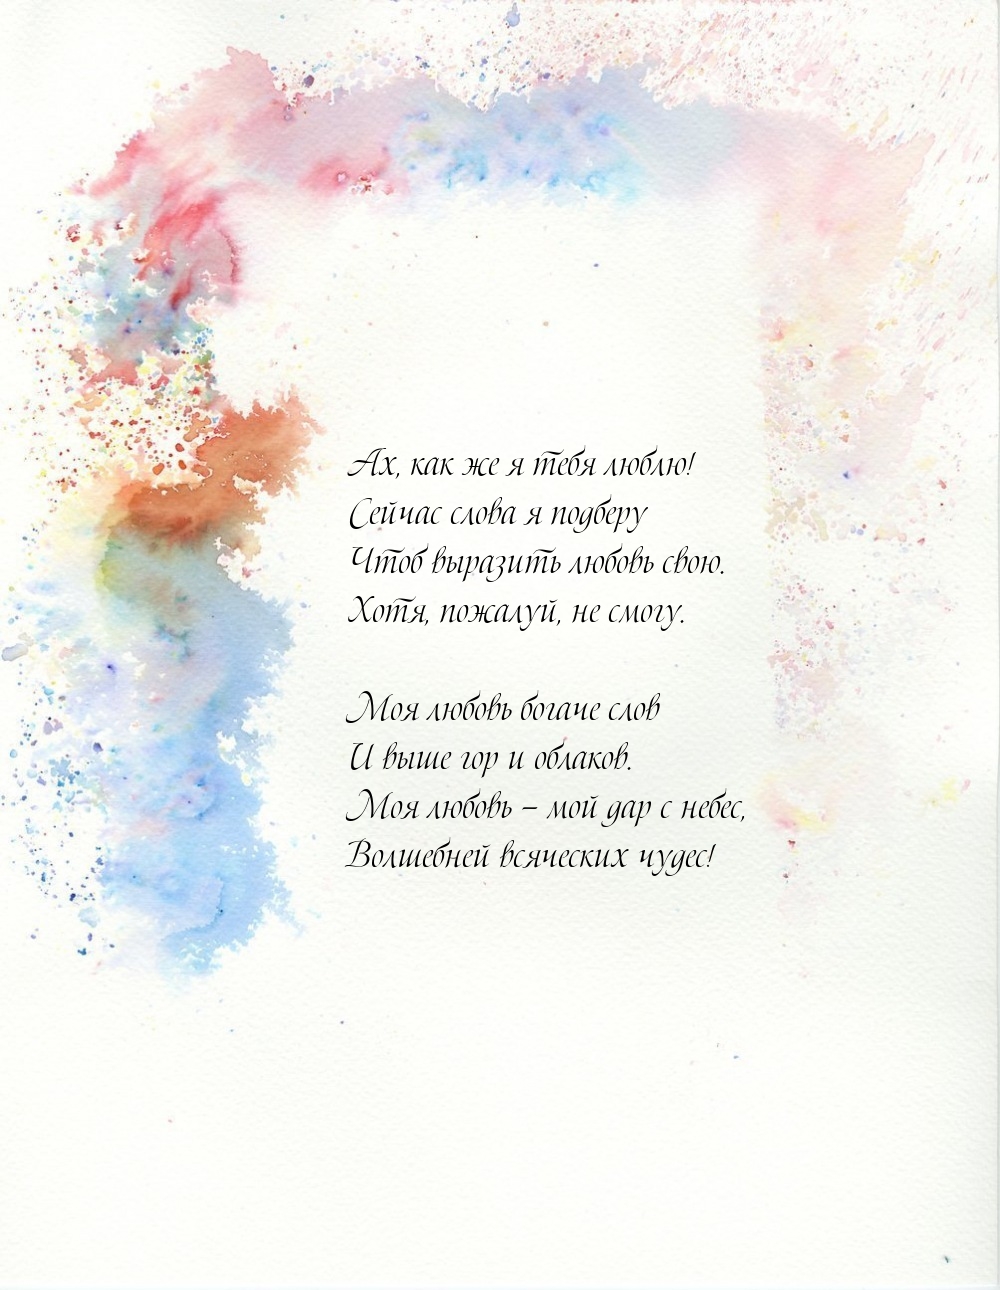 Ах, как же я тебя люблю!
Сейчас слова я подберу
Чтоб выразить любовь свою.
Хотя, пожалуй, не смогу.
Моя любовь богаче слов
И выше гор и облаков.
Моя любовь – мой дар с небес,
Волшебней всяческих чудес!